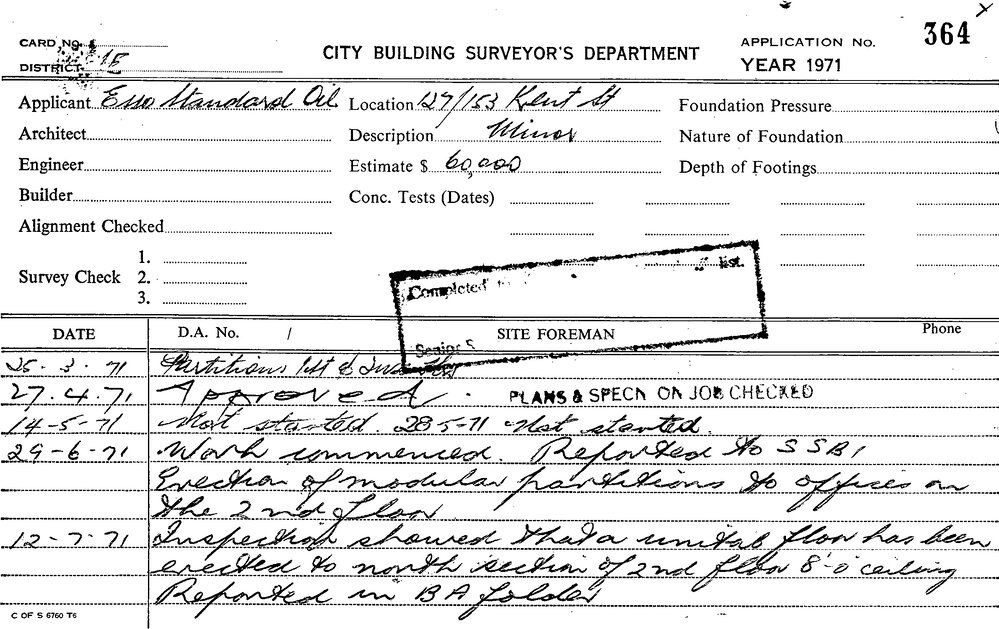 CARD No.
DISTRICT 15
CITY BUILDING SURVEYOR'S DEPARTMENT
APPLICATION No. 364
YEAR 1971
Applicant Esso Standard Oil
Location 127/153 Kent St
Foundation Pressure
Architect
Description Minor
Nature of Foundation
Engineer
Estimate $ 60,000
Depth of Footings
Builder
Conc. Tests (Dates)
Alignment Checked
Survey Check
1.
2.
3.
Completed list.
Senior S
DATE
D.A. No. /
SITE FOREMAN
Phone
25-3-71 Partitions 1st &
27.4.71 Approved. PLANS & SPECN ON JOB CHECKED
14-5-71 Not started. 28-5-71 Not started.
29-6-71 Work commenced. Reported to SSBI
Erection of modular partitions to offices on
the 2nd floor
12-7-71 Inspection showed that a floor has been
erected to north section of 2nd floor 8'-0" ceiling
Reported in BA folder
C OF S 6760 T6